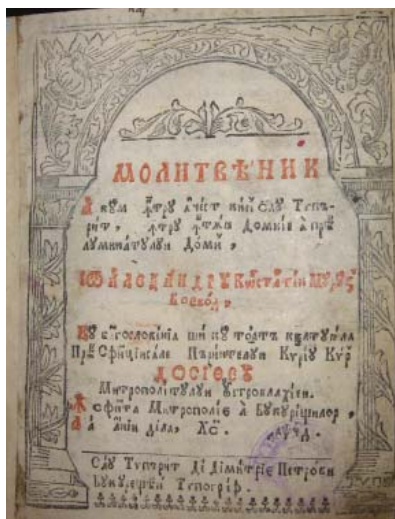 МОЛИТВѢНИК
Акум ꙟтру ачест кип сау Типъ-
рит, ꙟтру ꙟтѫа Домніе а прѣ
луминатулуи Домн,
Іѡ Алеѯандру Кѡстантин Мурꙋз
Воевод,
Ку блгословеніа ши ку тоатъ келтуіала
Прѣ Сфинціеи сале Пъринтелуи Куріу Кур
ДОСІѲЕУ
Митрополитулуи Унгровлахіеи.
Ꙟ Сфнта Митрополіе а Букурещилор,
ла аніи дела, Хс. ҂аѱчд.
Сау Типърит Де Димитріе Петрови
Букурещѣн Типограф.